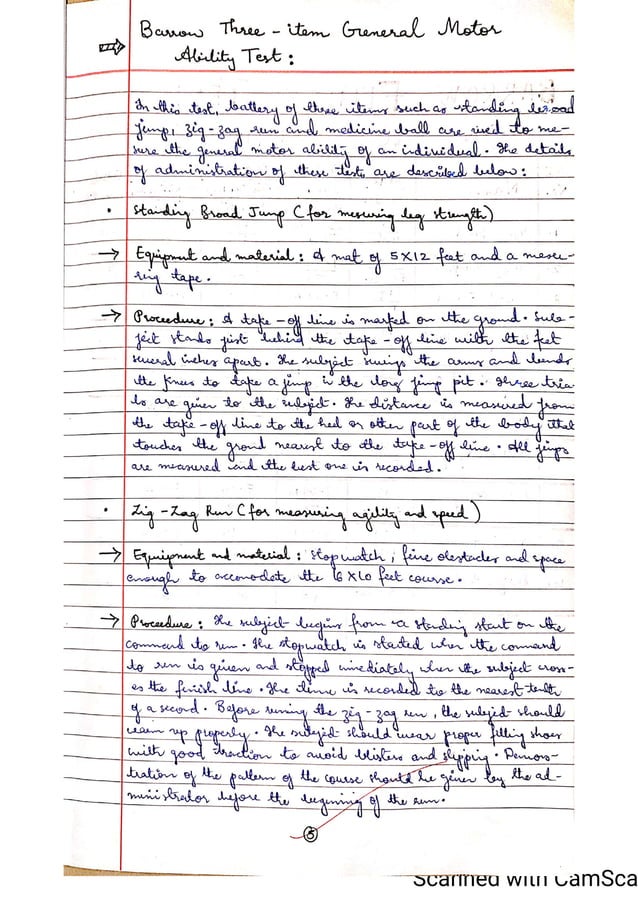 Barrow Three - item General Motor
Ability Test :
In this test, battery of three items such as standing broad
jump, zig-zag run and medicine ball are used to me-
sure the general motor ability of an individual. The details
of administration of these tests are described below :
• Standing Broad Jump ( for mesuring leg strength )
→ Equipment and material : A mat of 5X12 feet and a mesu-
ring tape.
→ Proceedure : A take - off line is marked on the ground. Sub-
ject stands just behind the take - off line with the feet
several inches apart. The subject swings the arms and bends
the knees to take a jump in the long jump pit. Three tria
ls are given to the subject. The distance is measured from
the take - off line to the heel or other part of the body that
touches the ground nearest to the take - off line. All jumps
are measured and the best one is recorded.
• Zig - Zag Run ( for measuring agility and speed )
→ Equipment and material : Stopwatch, five obstacles and space
enough to accomodate the 16 X10 feet course.
→ Procedure : The subject begins from a standing start on the
command to run. The stopwatch is started when the command
to run is given and stopped immediately when the subject cross-
es the finish line. The time is recorded to the nearest tenth
of a second. Before running the zig - zag run, the subject should
warm up properly. The subject should wear proper fitting shoes
with good traction to avoid blisters and slipping. Demons-
tration of the pattern of the course should be given by the ad-
ministrator before the beginning of the run.
5
Scanned with CamSca